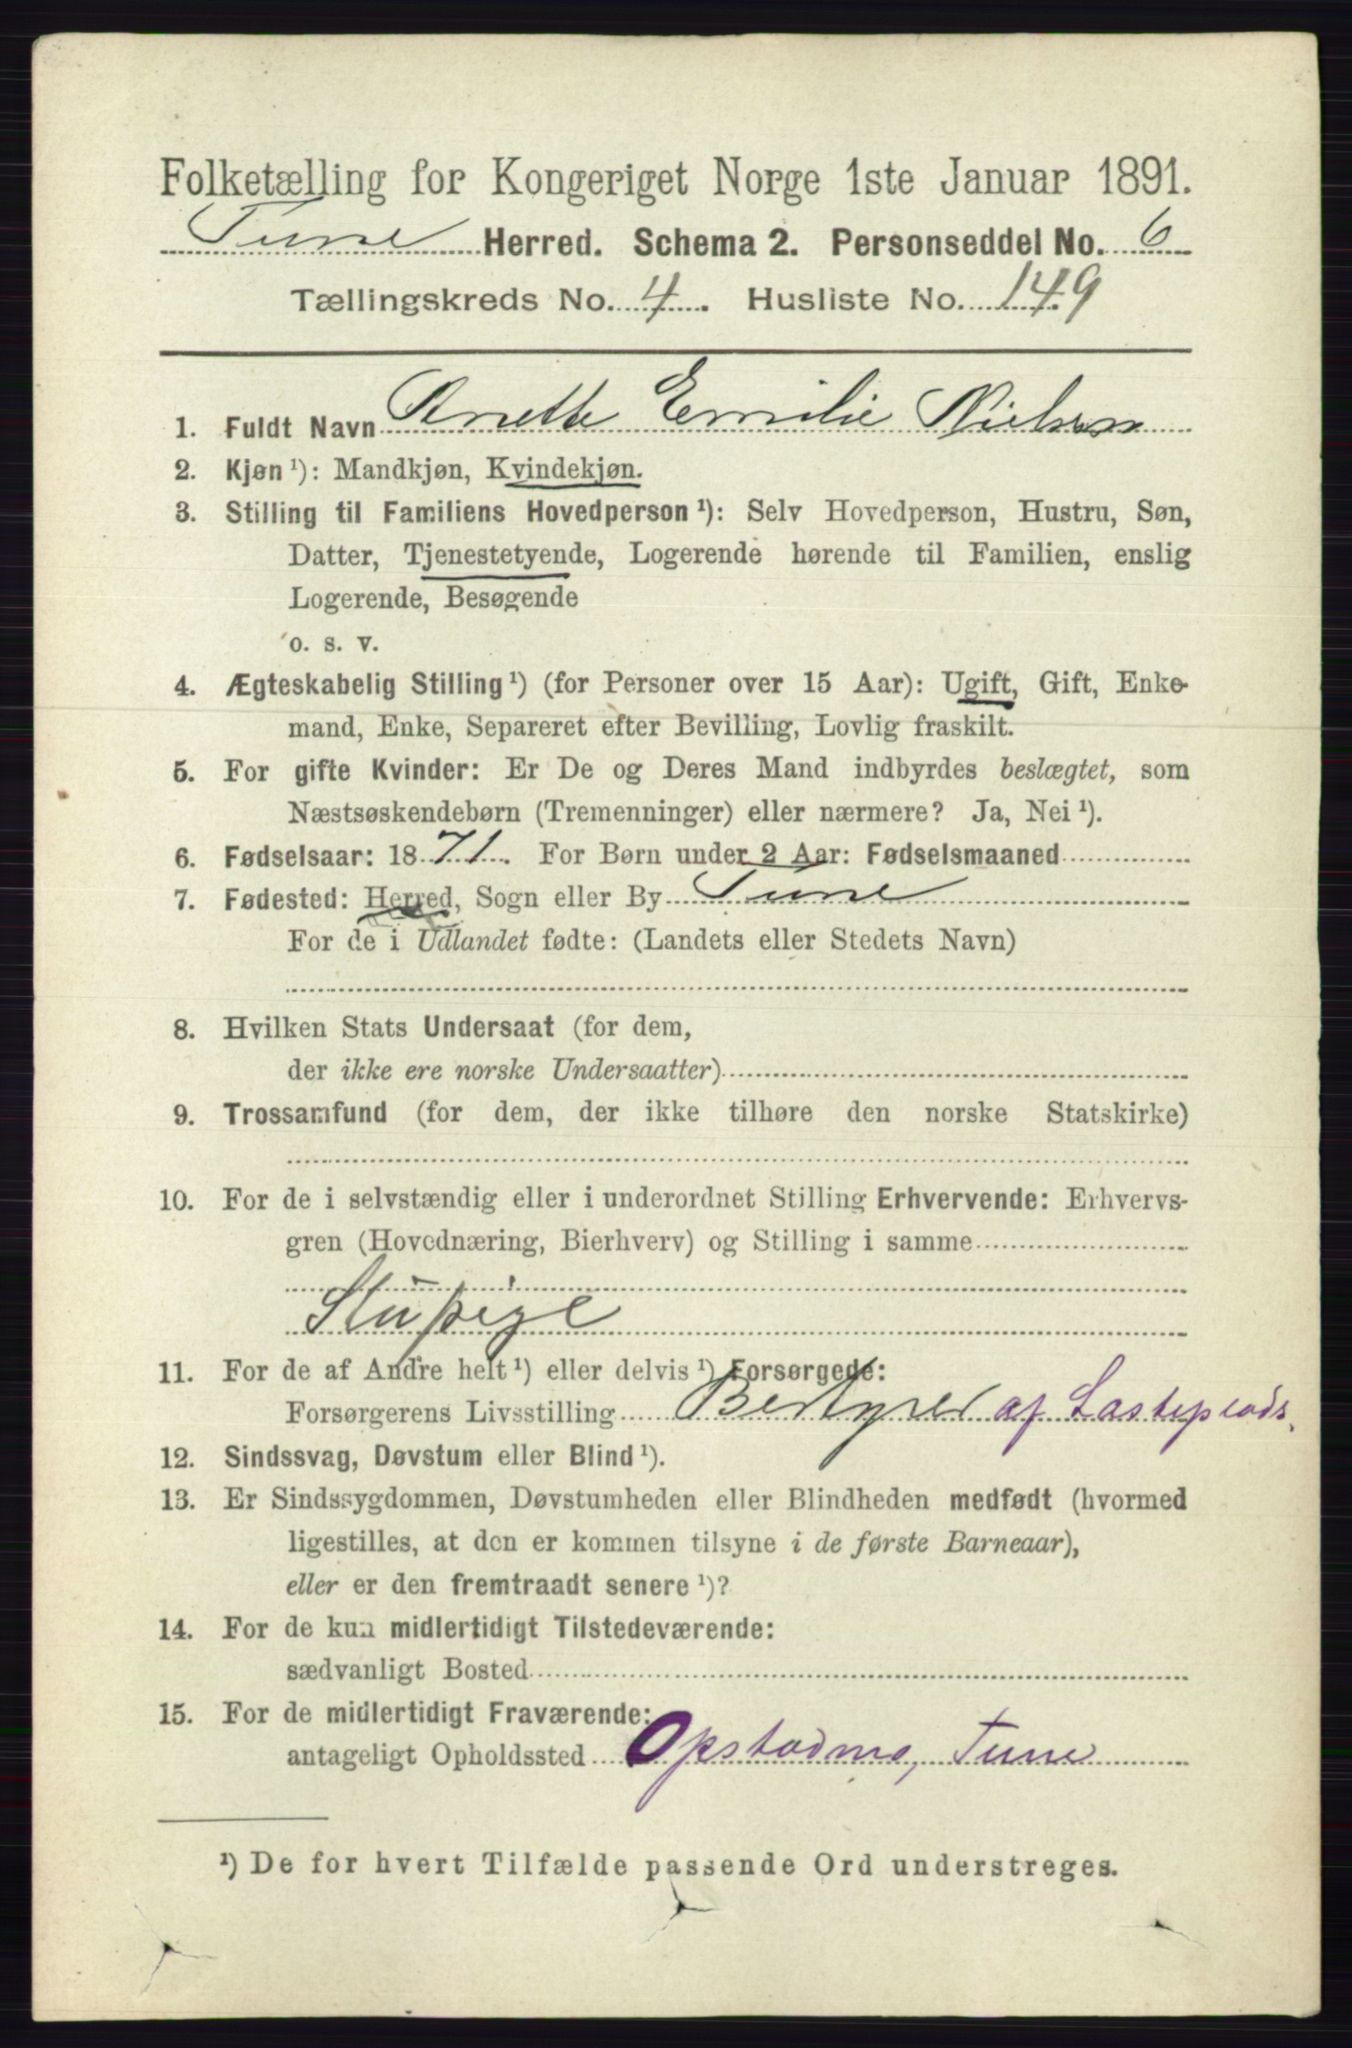 Folketælling for Kongeriget Norge 1ste Januar 1891.
Tune Herred. Schema 2. Personseddel No. 6
Tællingskreds No. 4. Husliste No. 149
1. Fuldt Navn Anette Emilie Nielsen
2. Kjøn ¹): Mandkjøn, Kvindekjøn.
3. Stilling til Familiens Hovedperson ¹): Selv Hovedperson, Hustru, Søn,
Datter, Tjenestetyende, Logerende hørende til Familien, enslig
Logerende, Besøgende
o. s. v.
4. Ægteskabelig Stilling ¹) (for Personer over 15 Aar): Ugift, Gift, Enke-
mand, Enke, Separeret efter Bevilling, Lovlig fraskilt.
5. For gifte Kvinder: Er De og Deres Mand indbyrdes beslægtet, som
Næstsøskendebørn (Tremenninger) eller nærmere? Ja, Nei ¹).
6. Fødselsaar: 1871. For Børn under 2 Aar: Fødselsmaaned
7. Fødested: Herred, Sogn eller By Tune
For de i Udlandet fødte: (Landets eller Stedets Navn)
8. Hvilken Stats Undersaat (for dem,
der ikke ere norske Undersaatter)
9. Trossamfund (for dem, der ikke tilhøre den norske Statskirke)
10. For de i selvstændig eller i underordnet Stilling Erhvervende: Erhvervs-
gren (Hovednæring, Bierhverv) og Stilling i samme
Stupige
11. For de af Andre helt ¹) eller delvis ¹) Forsørgede:
Forsørgerens Livsstilling Bestyrer af
12. Sindssvag, Døvstum eller Blind ¹).
13. Er Sindssygdommen, Døvstumheden eller Blindheden medfødt (hvormed
ligestilles, at den er kommen tilsyne i de første Barneaar),
eller er den fremtraadt senere ¹)?
14. For de kun midlertidigt Tilstedeværende:
sædvanligt Bosted
15. For de midlertidigt Fraværende:
antageligt Opholdssted Opstadmo, Tune
¹) De for hvert Tilfælde passende Ord understreges.